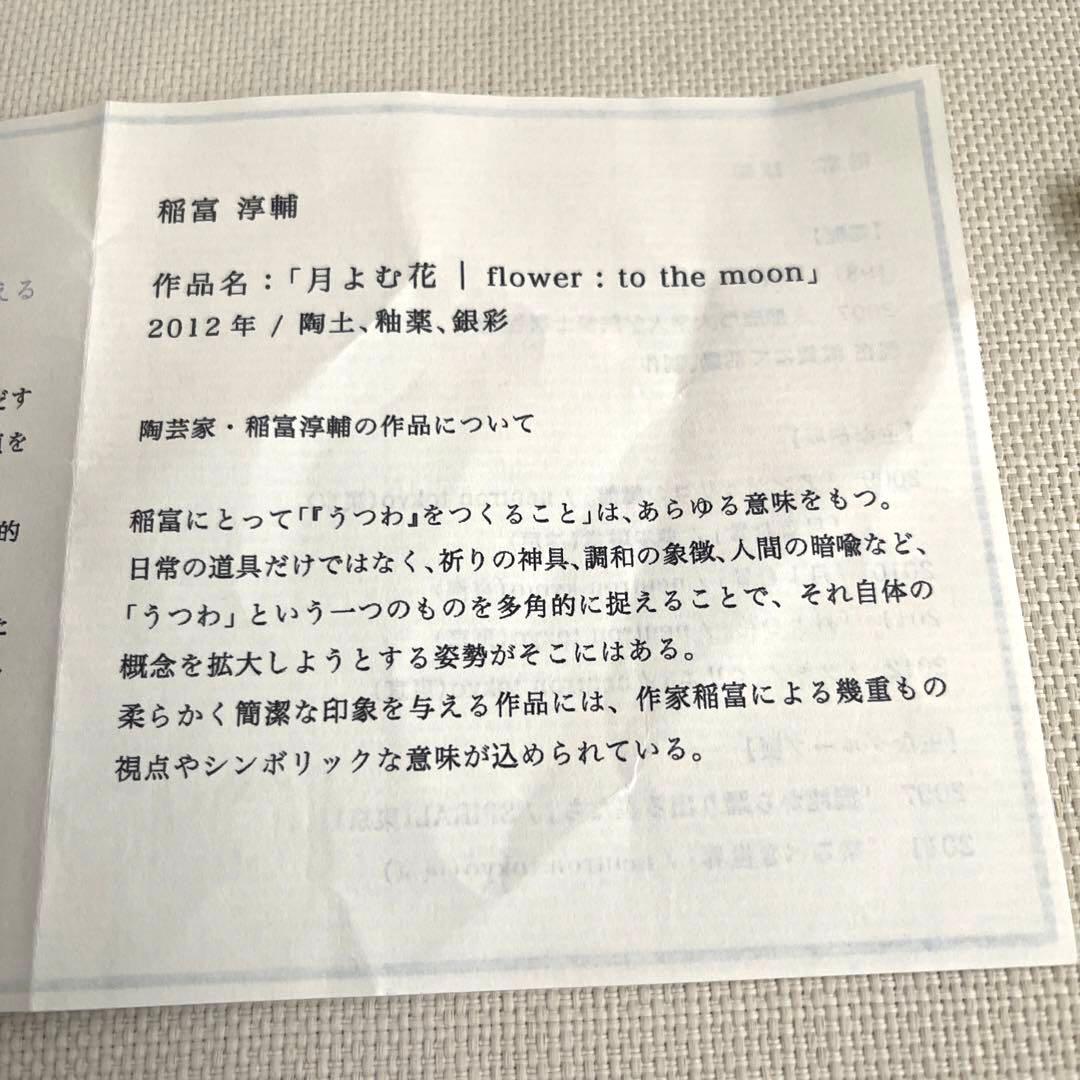 稲富 淳輔
作品名：「月よむ花｜flower : to the moon」
2012年 / 陶土、釉薬、銀彩
陶芸家・稲富淳輔の作品について
稲富にとって「『うつわ』をつくること」は、あらゆる意味をもつ。
日常の道具だけではなく、祈りの神具、調和の象徴、人間の暗喩など、
「うつわ」という一つのものを多角的に捉えることで、それ自体の
概念を拡大しようとする姿勢がそこにはある。
柔らかく簡潔な印象を与える作品には、作家稲富による幾重もの
視点やシンボリックな意味が込められている。
える
だす
を
的